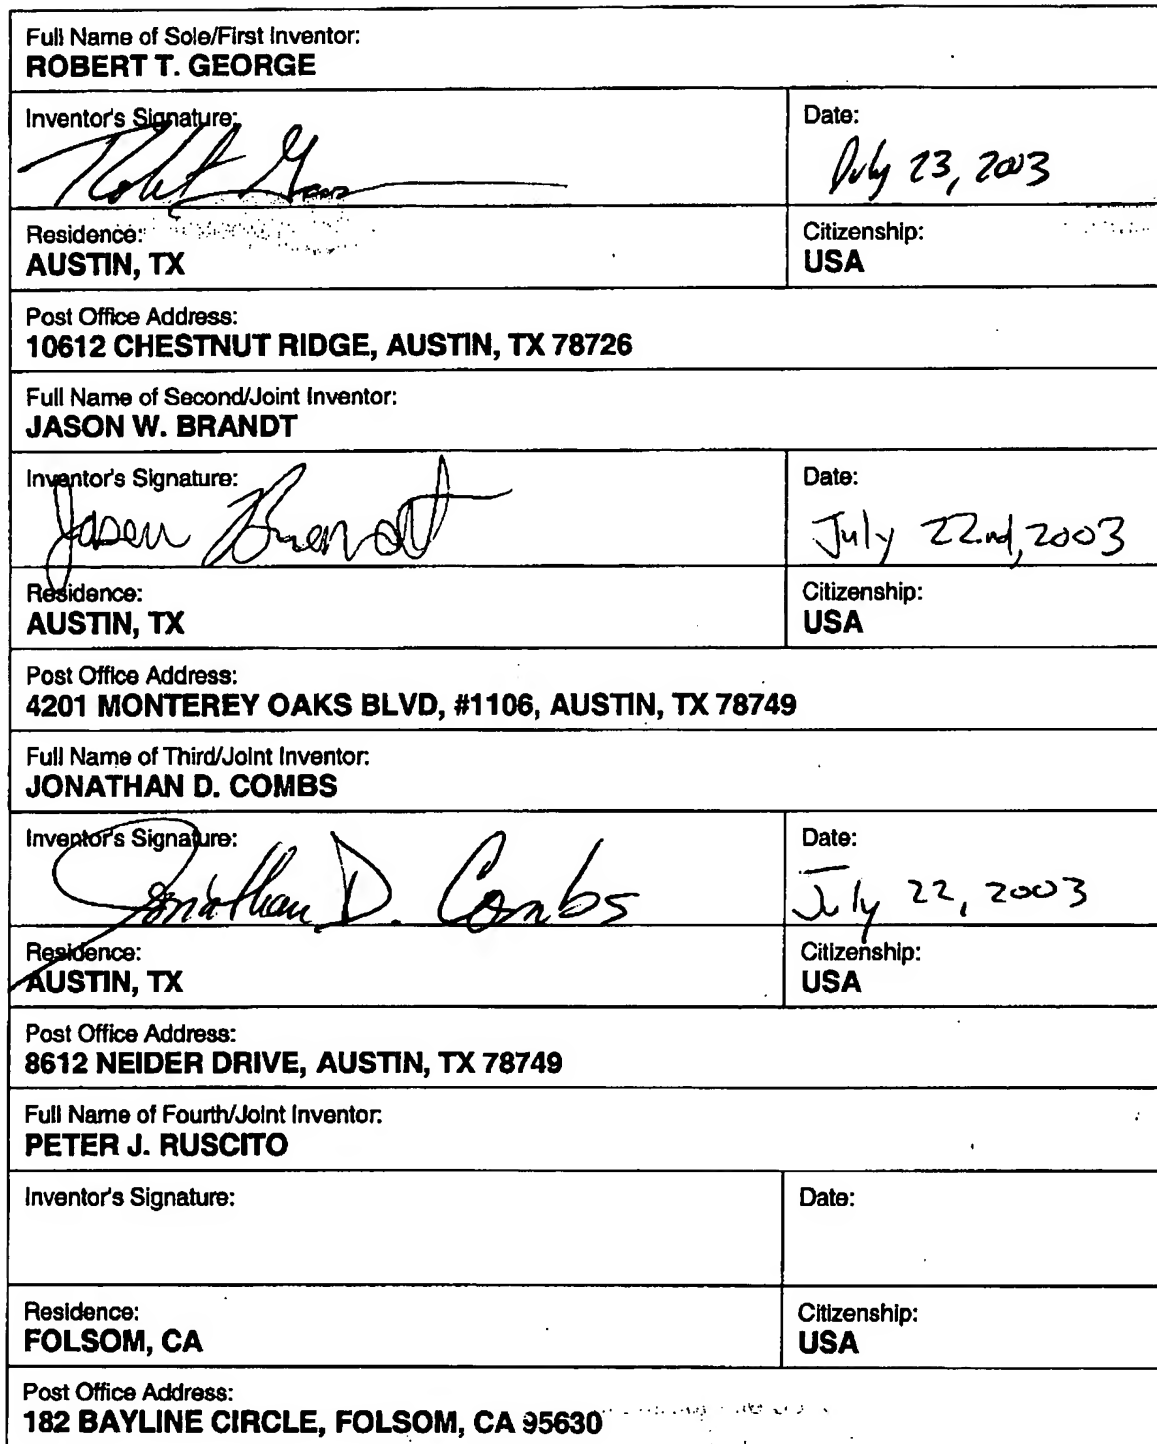 Full Name of Sole/First Inventor:
ROBERT T. GEORGE
Inventor's Signature:
Date:
Robert George
July 23, 2003
Residence:
AUSTIN, TX
Citizenship:
USA
Post Office Address:
10612 CHESTNUT RIDGE, AUSTIN, TX 78726
Full Name of Second/Joint Inventor:
JASON W. BRANDT
Inventor's Signature:
Date:
Jason Brandt
July 22nd, 2003
Residence:
AUSTIN, TX
Citizenship:
USA
Post Office Address:
4201 MONTEREY OAKS BLVD, #1106, AUSTIN, TX 78749
Full Name of Third/Joint Inventor:
JONATHAN D. COMBS
Inventor's Signature:
Date:
Jonathan D. Combs
July 22, 2003
Residence:
AUSTIN, TX
Citizenship:
USA
Post Office Address:
8612 NEIDER DRIVE, AUSTIN, TX 78749
Full Name of Fourth/Joint Inventor:
PETER J. RUSCITO
Inventor's Signature:
Date:
Residence:
FOLSOM, CA
Citizenship:
USA
Post Office Address:
182 BAYLINE CIRCLE, FOLSOM, CA 95630